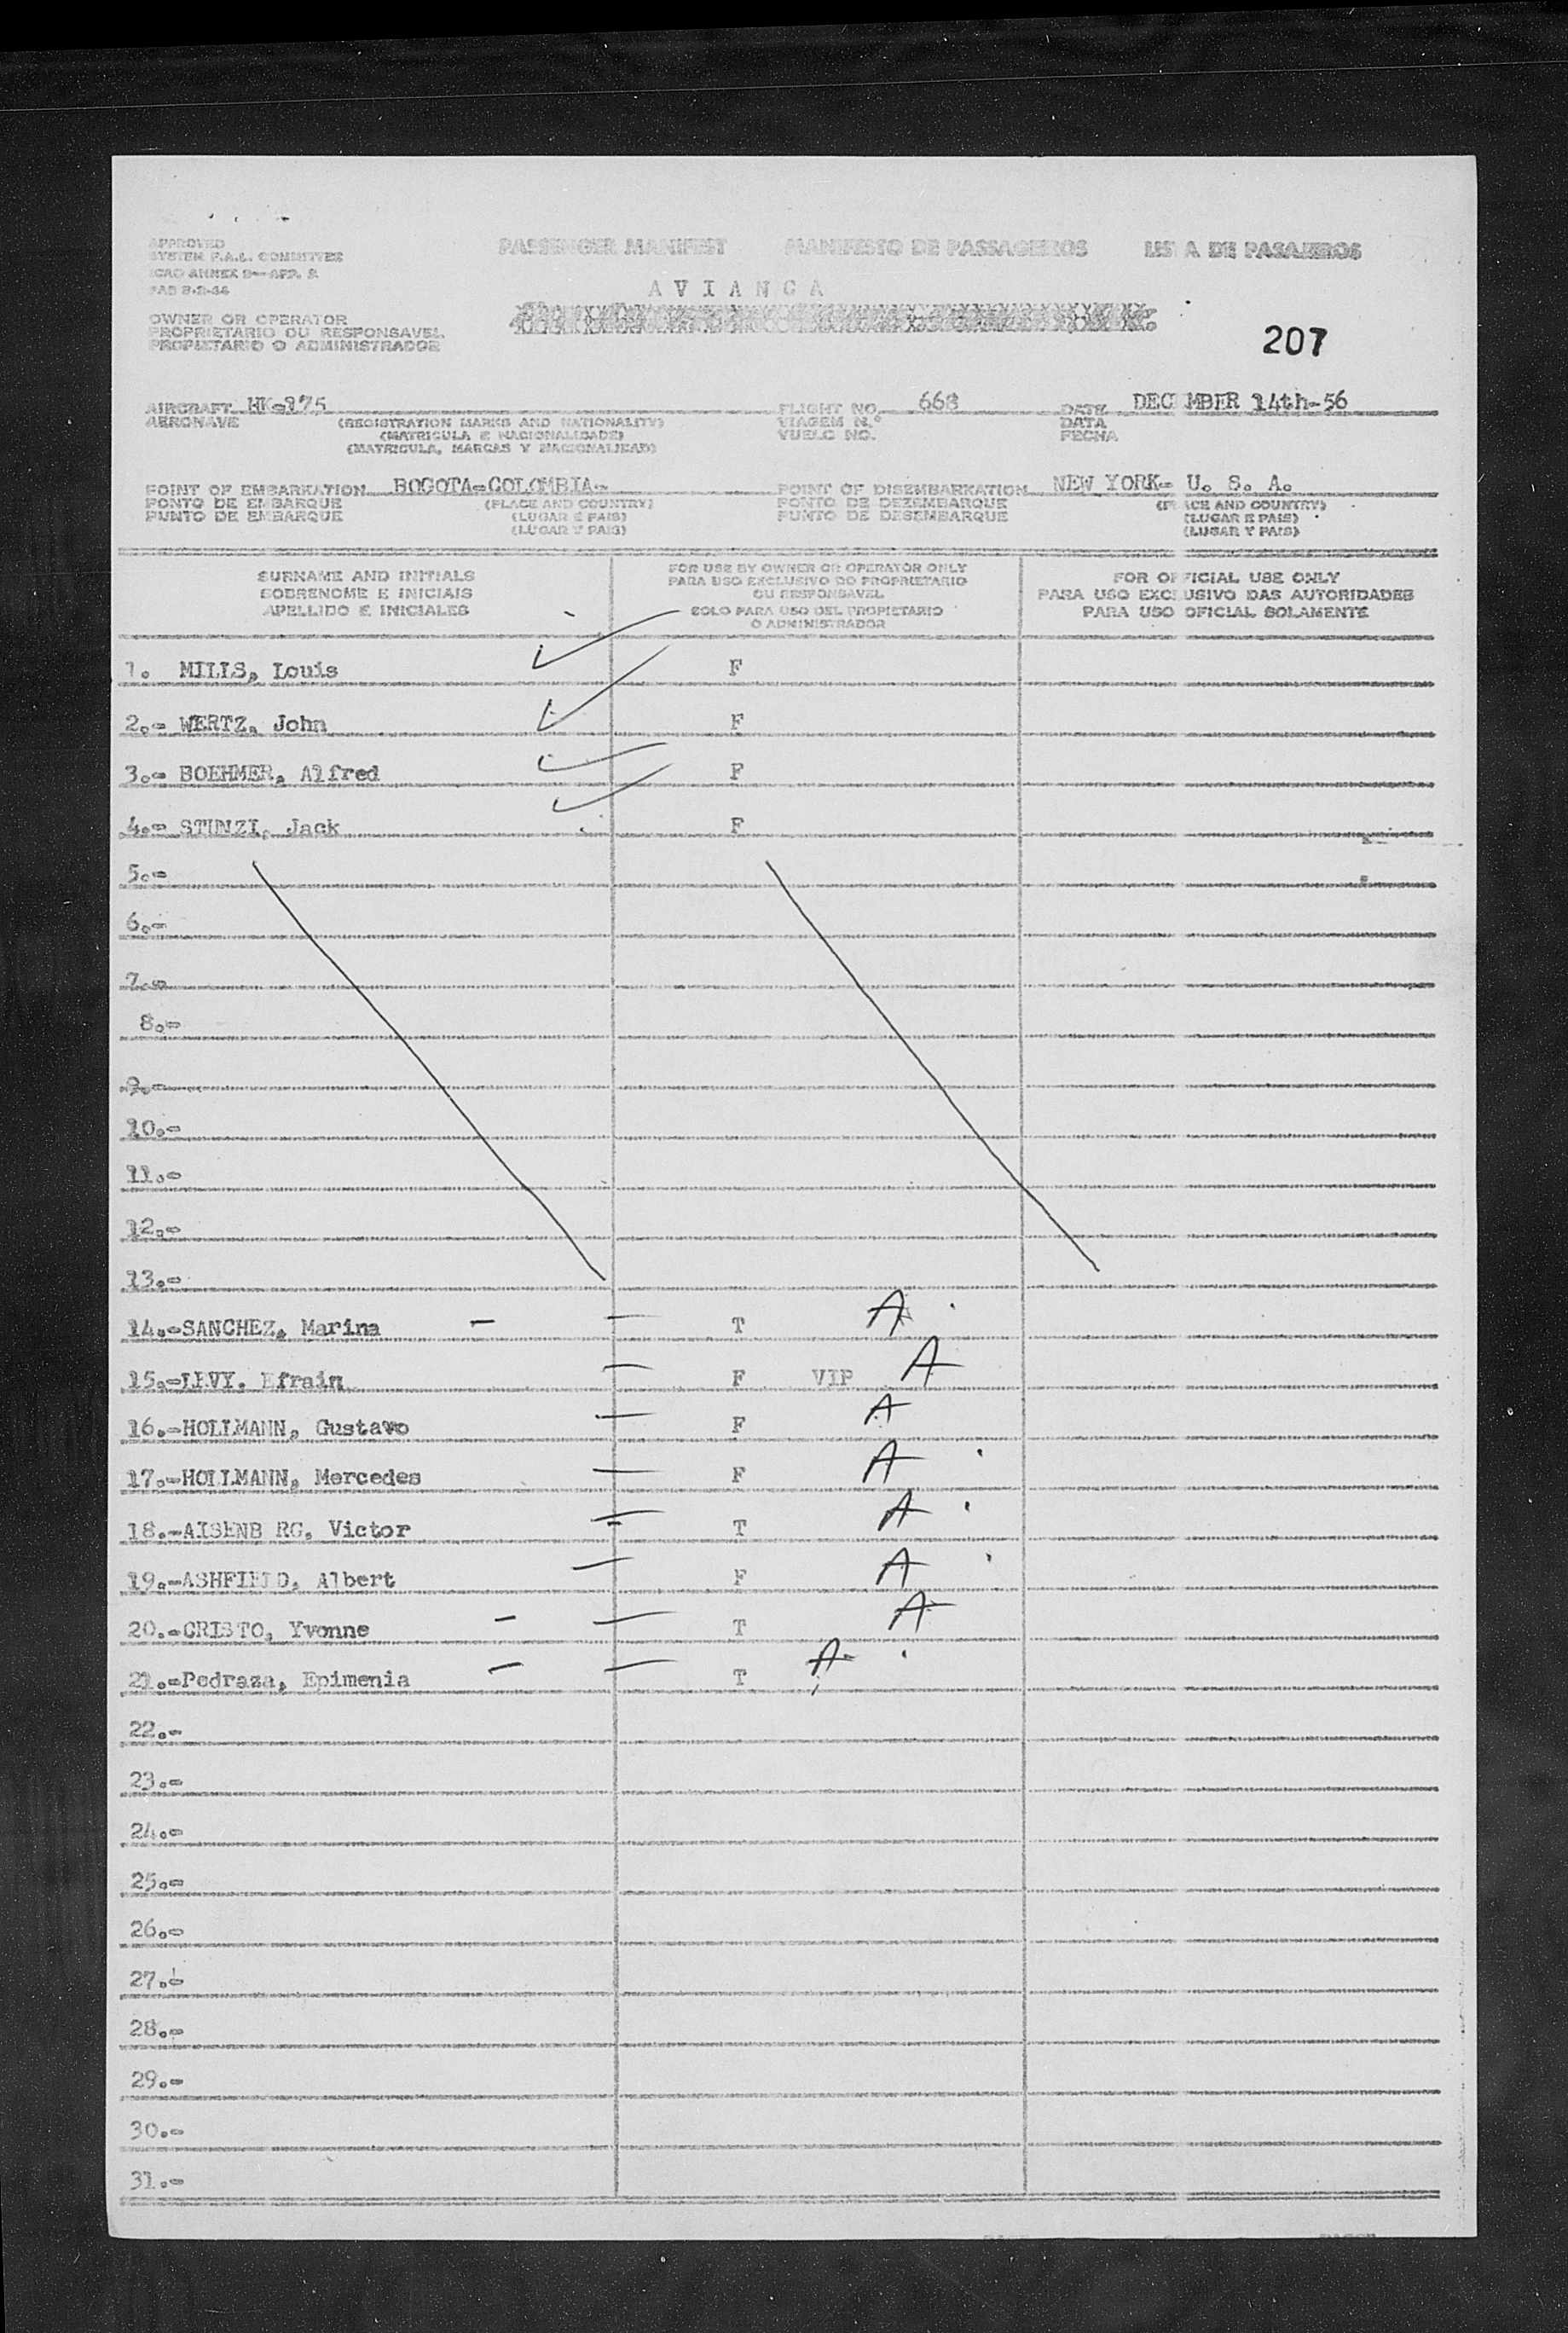 APPROVED
SYSTEM F.A.L. COMMITTEE
ICAO ANNEX 9—APP. 
PASSENGER MANIFEST MANIFESTO DE PASSAGEIROS LIS A DE PASAJEROS
A V I A N C A
OWNER OR OPERATOR
PROPRIETARIO OU RESPONSAVEL
PROPIETARIO O ADMINISTRADOR
207
AIRCRAFT HK-175 FLIGHT NO. 668 DATE DEC MBER 14th-56
AERONAVE (REGISTRATION MARKS AND NATIONALITY) VIAGEM N.º DATA
(MATRICULA E NACIONALIDADE) VUELO NO. FECHA
(MATRICULA, MARCAS Y NACIONALIDAD)
POINT OF EMBARKATION BOGOTA-COLOMBIA- POINT OF DISEMBARKATION NEW YORK- U. S. A.
PONTO DE EMBARQUE (PLACE AND COUNTRY) PONTO DE DEZEMBARQUE (PLACE AND COUNTRY)
PUNTO DE EMBARQUE (LUGAR E PAIS) PUNTO DE DESEMBARQUE (LUGAR E PAIS)
(LUGAR Y PAIS) (LUGAR Y PAIS)
SURNAME AND INITIALS
SOBRENOME E INICIAIS
APELLIDO E INICIALES
FOR USE BY OWNER OR OPERATOR ONLY
PARA USO EXCLUSIVO DO PROPRIETARIO
OU RESPONSAVEL
SOLO PARA USO DEL PROPIETARIO
O ADMINISTRADOR
FOR OFFICIAL USE ONLY
PARA USO EXCLUSIVO DAS AUTORIDADES
PARA USO OFICIAL SOLAMENTE
1. MILLS, Louis F
2.- WERTZ, John F
3.- BOEHMER, Alfred F
4.- STUNZI, Jack F
5.-
6.-
7.-
8.-
9.-
10.-
11.-
12.-
13.-
14.-SANCHEZ, Marina T A
15.-LEVY. Efrain F VIP A
16.-HOLLMANN, Gustavo F A
17.-HOLLMANN, Mercedes F A
18.-AISENB RG, Victor T A
19.-ASHFIELD, Albert F A
20.-CRISTO, Yvonne T A
21.-Pedraza, Epimenia T A
22.-
23.-
24.-
25.-
26.-
27.-
28.-
29.-
30.-
31.-